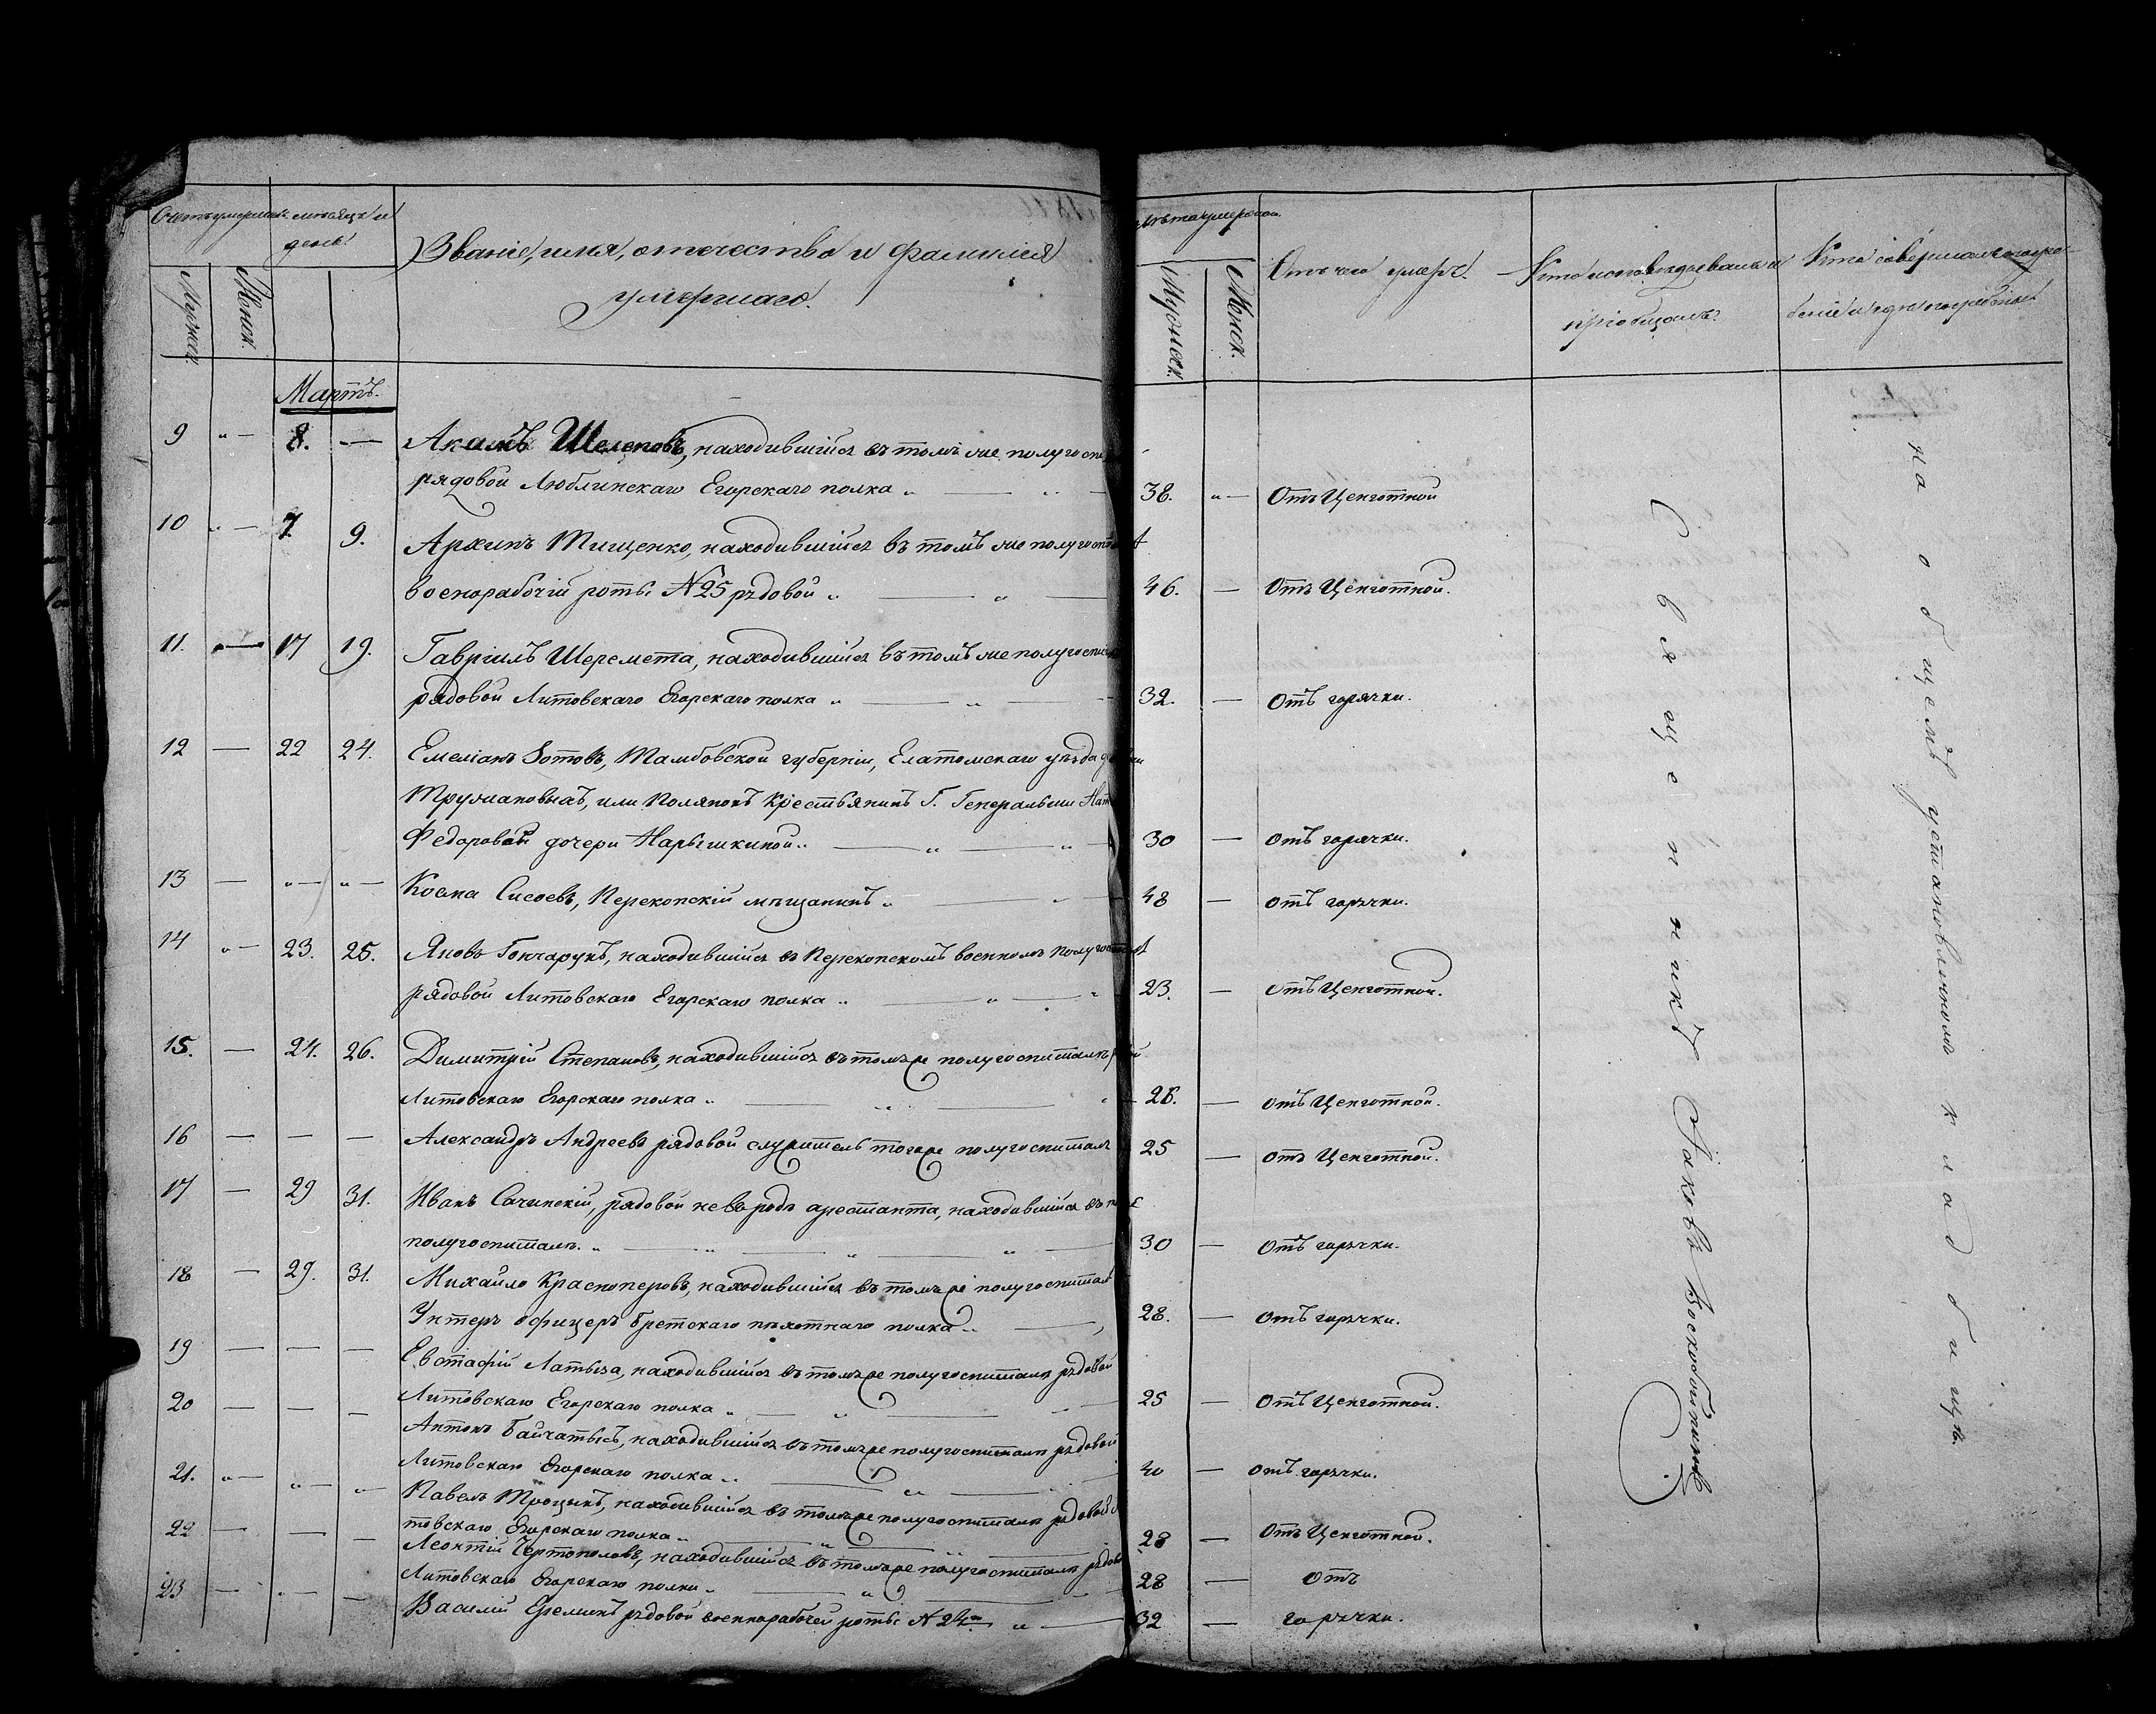 Счетъ умершихъ мѣсяцъ и день.
Званіе, имя, отечество и фамилія
умершаго.
Мужеск.
Женск.
лѣта умершаго.
Мужеск.
Женск.
Отъ чего умеръ.
Кто исповѣдывалъ и
пріобщалъ.
Кто совершалъ погре-
беніе и гдѣ погребены
Мартъ.
9 „ — 8. „ —
Шелеповъ, находившійся въ томъ же полугоспи
рядовой Люблинскаго Егорскаго полка „ — 38. „ — Отъ Ценготной
10 „ — 7. 9. Архипъ Тищенко, находившійся въ томъ же полугоспит
военорабочій роты N 25 рядовой „ — „ — 46. — Отъ Ценготной.
11. — 17 19. Гавріилъ Шеремета, находившійся въ томъ же полугоспи
рядовой Литовскаго Егорскаго полка „ — „ — 32. — Отъ горячки.
12 — 22 24. Емеліанъ Зотовъ, Тамбовской губерніи, Елатомскаго уѣзда
или Полянокъ крестьянинъ Г. Генеральши Нат
Федоровой дочери Нарышкиной „ — „ — „ 30 — отъ горячки.
13 — „ — „ — Косма Сисоевъ, Перекопскій мѣщанинъ „ — „ — 48 — отъ горячки.
14 „ — 23. 25. Яковъ Гончарукъ, находившійся въ Перекопскомъ военномъ полугоспит
рядовой Литовскаго Егорскаго полка „ — „ — „ 23. — отъ Ценготной.
15. — 24. 26. Димитрій Степановъ, находившійся въ томъ же полугоспиталѣ
Литовскаго Егорскаго полка „ — „ — „ 26. — отъ Ценготной.
16 — — — Александръ Андреевъ рядовой служитель тогоже полугоспиталя 25 — отъ Ценготной.
17 — 29 31. Иванъ Сачинскій, рядовой арестанта, находившійся въ
полугоспиталѣ. „ — „ — „ — „ — 30 — Отъ горячки.
18 — 29. 31. Михайло Красноперовъ, находившійся въ томъ же полугоспитал
Унтеръ офицеръ Брестскаго пѣхотнаго полка „ — 28. — отъ горячки.
19 — — — Евстафій Латыга, находившійся въ томъ же полугоспиталѣ рядовой
Литовскаго Егорскаго полка „ — „ — „ — 25 — отъ Ценготной.
20 — — — Антонъ находившійся въ томъ же полугоспиталѣ рядовой
Литовскаго Егорскаго полка „ — „ — 40 — отъ горячки.
21. „ — „ — „ — Павелъ Троцыкъ, находившійся въ томъ же полугоспиталѣ рядовой
товскаго Егорскаго полка „ — „ — „ — 28 — Отъ Ценготной.
22 — — — Леонтій Чертополовъ, находившійся въ томъ же полугоспиталѣ рядово
Литовскаго Егорскаго полка „ — „ — 28 — отъ
23 — „ — — Василій рядовой военнорабочей роты N 24й „ — 32 — горячки.
Священникъ Іаковъ Воскобойниковъ
на общемъ установленномъ кладбищѣ.